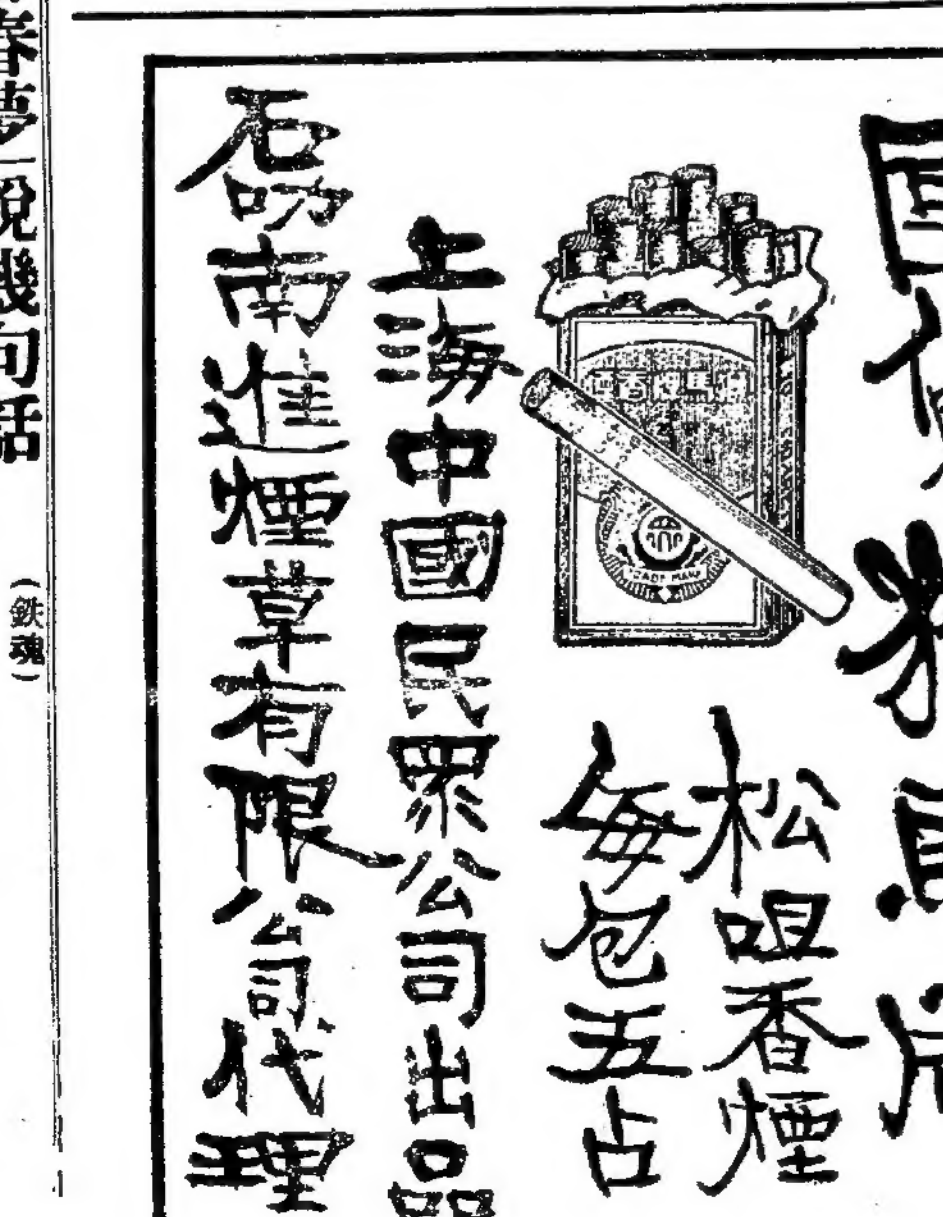 松咀香煙
每包五占
上海中國民眾公司出品
石叻南進煙草有限公司代理
TRADE MARK
春夢﹂說幾句話
（鉄魂）